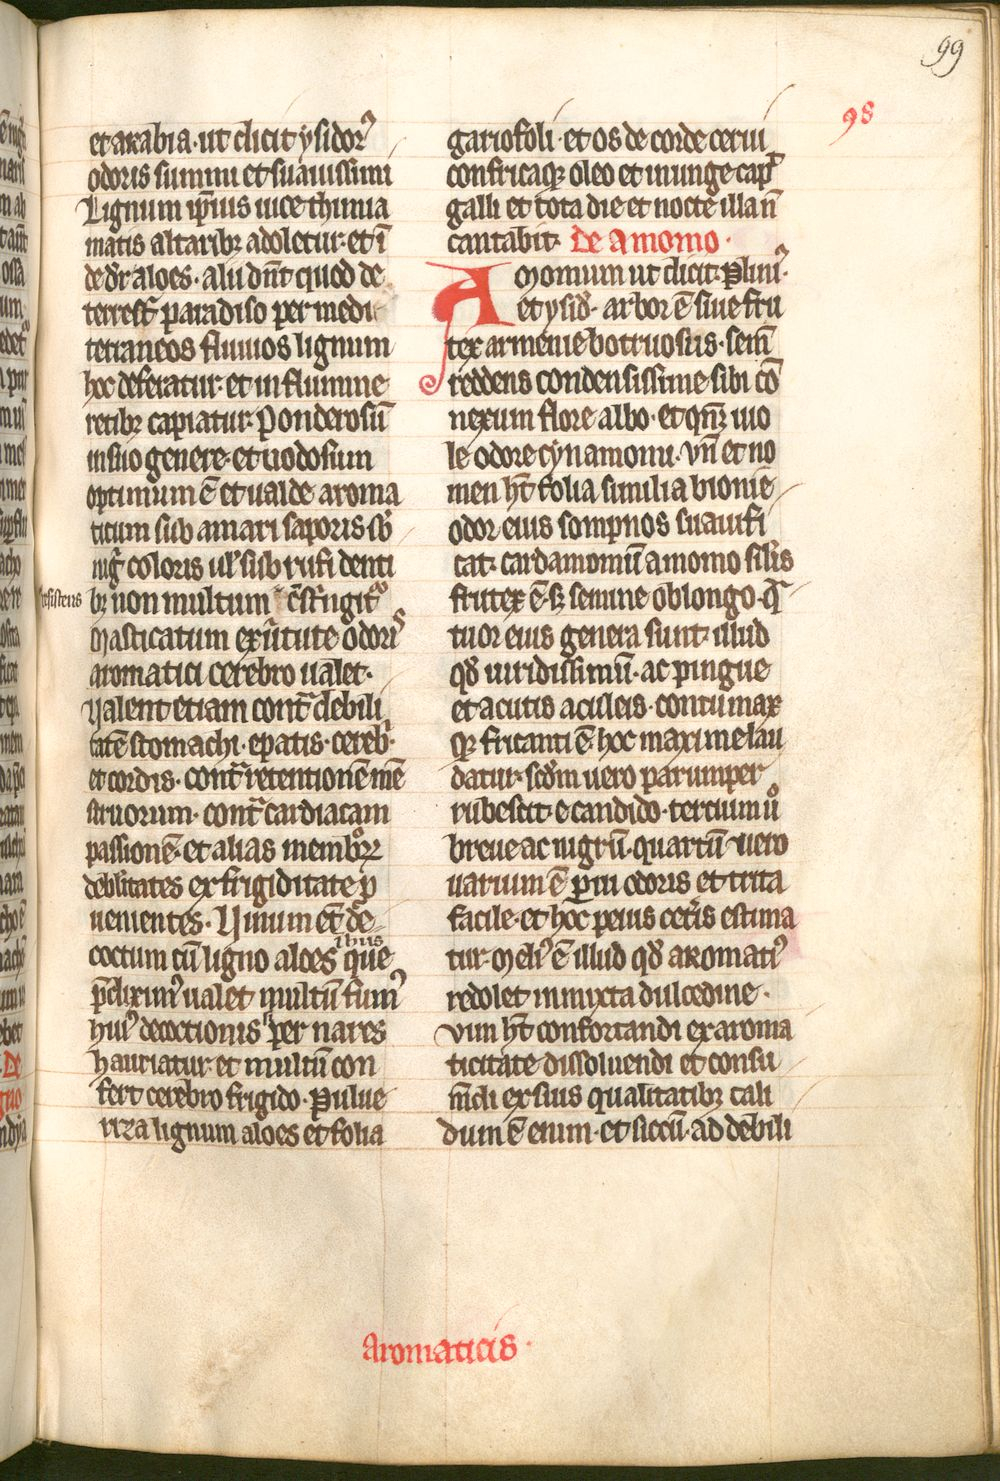 99
98
et arabia · ut dicit ysidorꝰ
odoris summi et suauissimi
Lignum ip̄ius uice thimia
matis altaribꝫ adoletur · et ī
de dr̄ aloes · alii dn̄t quod de
terrest͛ paradiso per medi
terraneos fluuios lignum
hoc deferatur · et in flumine
retibꝫ capiatur · Ponderosū
in suo genere · et nodosum
optimum ē et ualde aroma
ticum sub amari saporis sb̄
nig͛ coloris ul̓ sub rufi denti
resistens bꝫ non multum
Masticatum ex ũtute odorꝭ
aromatici cerebro ualet ·
Valent etiam cont͛ debili
tatē stomachi · epatis · cereb͛ ·
et cordis · cont͛ retentionē mē
struorum · cont͛ cardiacam
passionē · et alias membroꝝ
debilitates ex frigiditate ꝓ
uenientes · Vinum et͛ de
coctum cū ligno aloes thus que
p̄diximꝰ ualet multū fumꝰ
huiꝰ decoctionis si per nares
hauriatur · et multū con
fert cerebro frigido · Pulue
riza lignum aloes et folia
gariofoli · et os de corde cerui
confricaqꝫ oleo et inunge cap̄
galli et tota die et nocte illa n̄
cantabit · De Amomo ·
Amomum ut dicit · Pliniꝰ ·
et ysid͛ · arbor ē siue fru
tex armenie botruosus · sem̄
reddens condensissime sibi cō
nexum flore albo · et qn̄ꝫ uio
le odore cynamomi · vn̄ et no
men h̄t folia similia bionie
odor eius sompnos suauifi
cat · cardamomū amomo sil̓is
frutex ē · sꝫ semine oblongo · qͣ
tuor eius genera sunt · illud
qd̄ uiridissimū · ac pingue
et acutis aculeis · contumax
qꝫ fricanti ē · hoc maxime lau
datur · scd̄m uero parumper
rubescit · e candido · tertium uͦ
breue ac nigrū · quartū uero
uarium ē parui odoris et trita
facile · et hoc peius cet͛is estima
tur · Meliꝰ ē illud qd̄ aromatiꝰ
redolet inmixta dulcedine ·
vim h̄t confortandi ex aroma
ticitate dissoluendi et consu
m̄di ex suis qualitatibꝫ cali
dum ē enim · et siccū · ad debili
Aromaticis ·